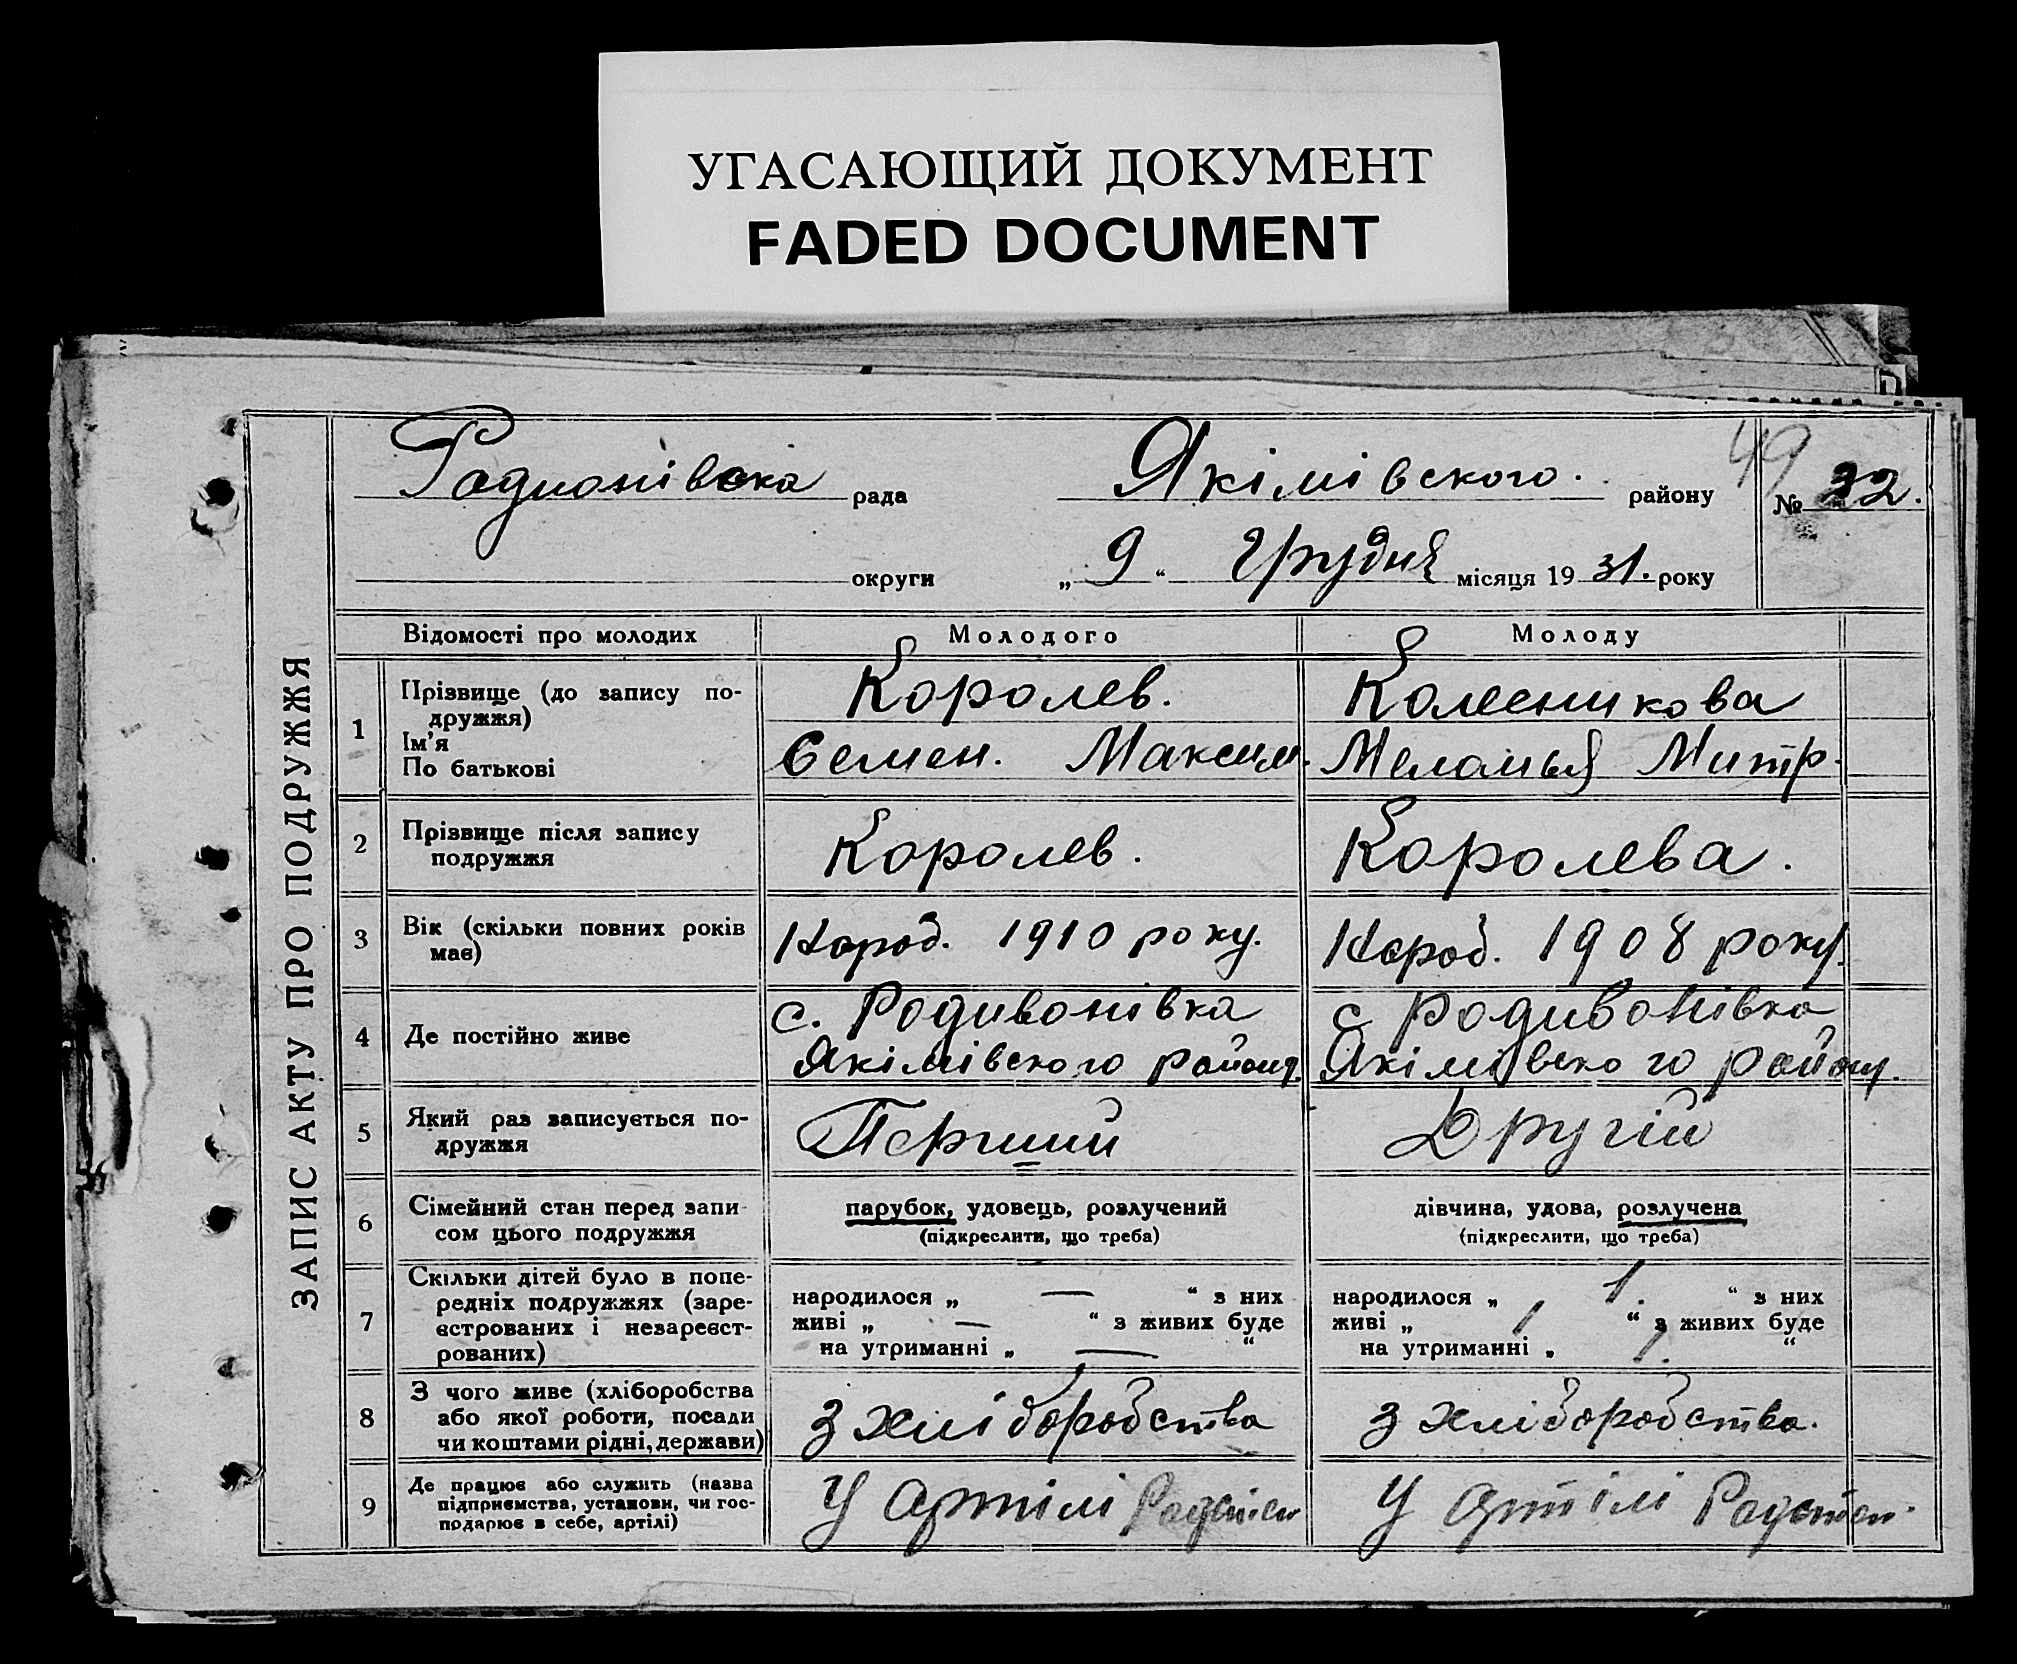 УГАСАЮЩИЙ ДОКУМЕНТ
FADED DOCUMENT
ЗАПИС АКТУ ПРО ПОДРУЖЖЯ
Радионівска рада Якімівского. району 49 № 22.
округи „ 9 “ Грудня місяця 19 31. року
Відомості про молодих Молодого Молоду
1 Прізвище (до запису по-
дружжя)
Ім'я
По батькові
Королев. Колесникова
Семен. Максим. Меланья Митр.
2 Прізвище після запису
подружжя
Королев. Королева.
3 Вік (скільки повних років
має)
Народ. 1910 року. Народ. 1908 року.
4 Де постійно живе
с. Родивонівка с Родивонівка
Якімівского району. Якімівского району.
5 Який раз записується по-
дружжя
Перший Другій
6 Сімейний стан перед запи-
сом цього подружжя
парубок, удовець, розлучений дівчина, удова, розлучена
(підкреслити, що треба) (підкреслити, що треба)
7 Скільки дітей було в попе-
редніх подружжях (заре-
єстрованих і незареєст-
рованих)
народилося „ — “ з них народилося „ 1. “ з них
живі „ — “ з живих буде живі „ 1 “ з живих буде
на утриманні „ — “ на утриманні „ 1. “
8 З чого живе (хліборобства
або якої роботи, посади
чи коштами рідні, держави)
З хліборобства З хліборобства.
9 Де працює або служить (назва
підприємства, установи, чи гос-
подарює в себе, артілі)
У Артілі У Артілі